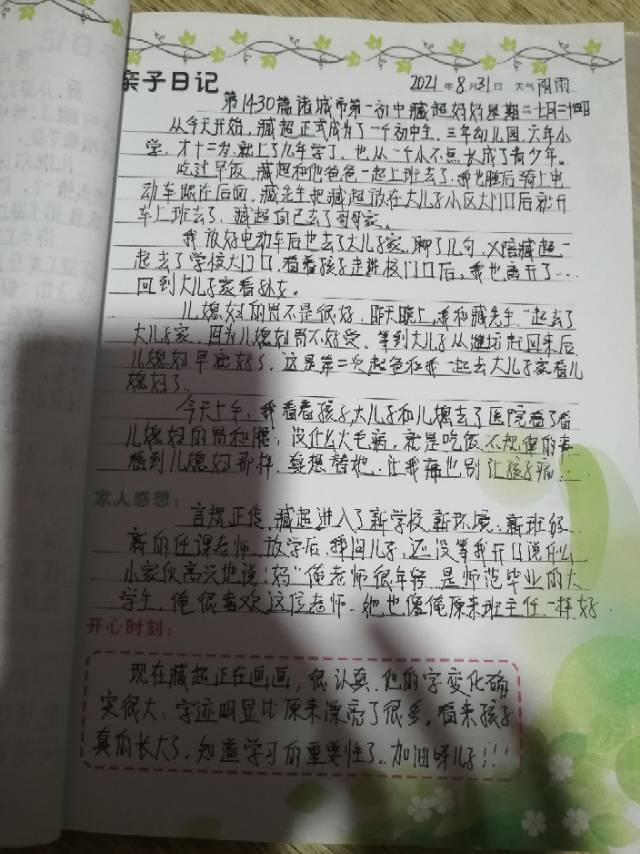 亲子日记 2021年8月31日 天气 阴雨
第1430篇诸城市第一初中臧超妈妈星期二七月二十四
从今天开始，臧超正式成为了一个初中生，三年幼儿园，六年小
学，才十二岁，就上了九年学了，也从一个小不点长成了青少年。
吃过早饭，臧超和他爸爸一起上班去了，我也随后骑上电
动车跟在后面，臧先生把臧超放在大儿子小区大门口后就开
车上班去了，臧超自己去了哥哥家。
我放好电动车后也去了大儿子家，聊了几句，又陪臧超一
起去了学校大门口，看着孩子走进校门口后，我也离开了…
回到大儿子家看孙女。
儿媳妇的胃不是很好，昨天晚上，我和臧先生一起去了
大儿子家，因为儿媳妇胃不好受，等到大儿子从潍坊赶回来后
儿媳妇早就好了，这是第二次超爸和我一起去大儿子家看儿
媳妇了。
今天上午，我看着孩子，大儿子和儿媳去了医院看了看
儿媳妇的胃和腰，没什么大毛病，就是吃饭不规律的事
看到儿媳妇那样，真想替她，让我痛也别让孩子痛！
家人感想：
言归正传，臧超进入了新学校，新环境，新班级
新的任课老师，放学后，我问儿子，还没等我开口说什么
小家伙高兴地说：妈“俺老师很年轻，是师范毕业的大
学生，俺很喜欢这位老师，她也像俺原来班主任一样好
开心时刻：
现在臧超正在画画，很认真，他的字变化确
实很大，字迹明显比原来漂亮了很多，看来孩子
真的长大了，知道学习的重要性了，加油呀儿子！！！